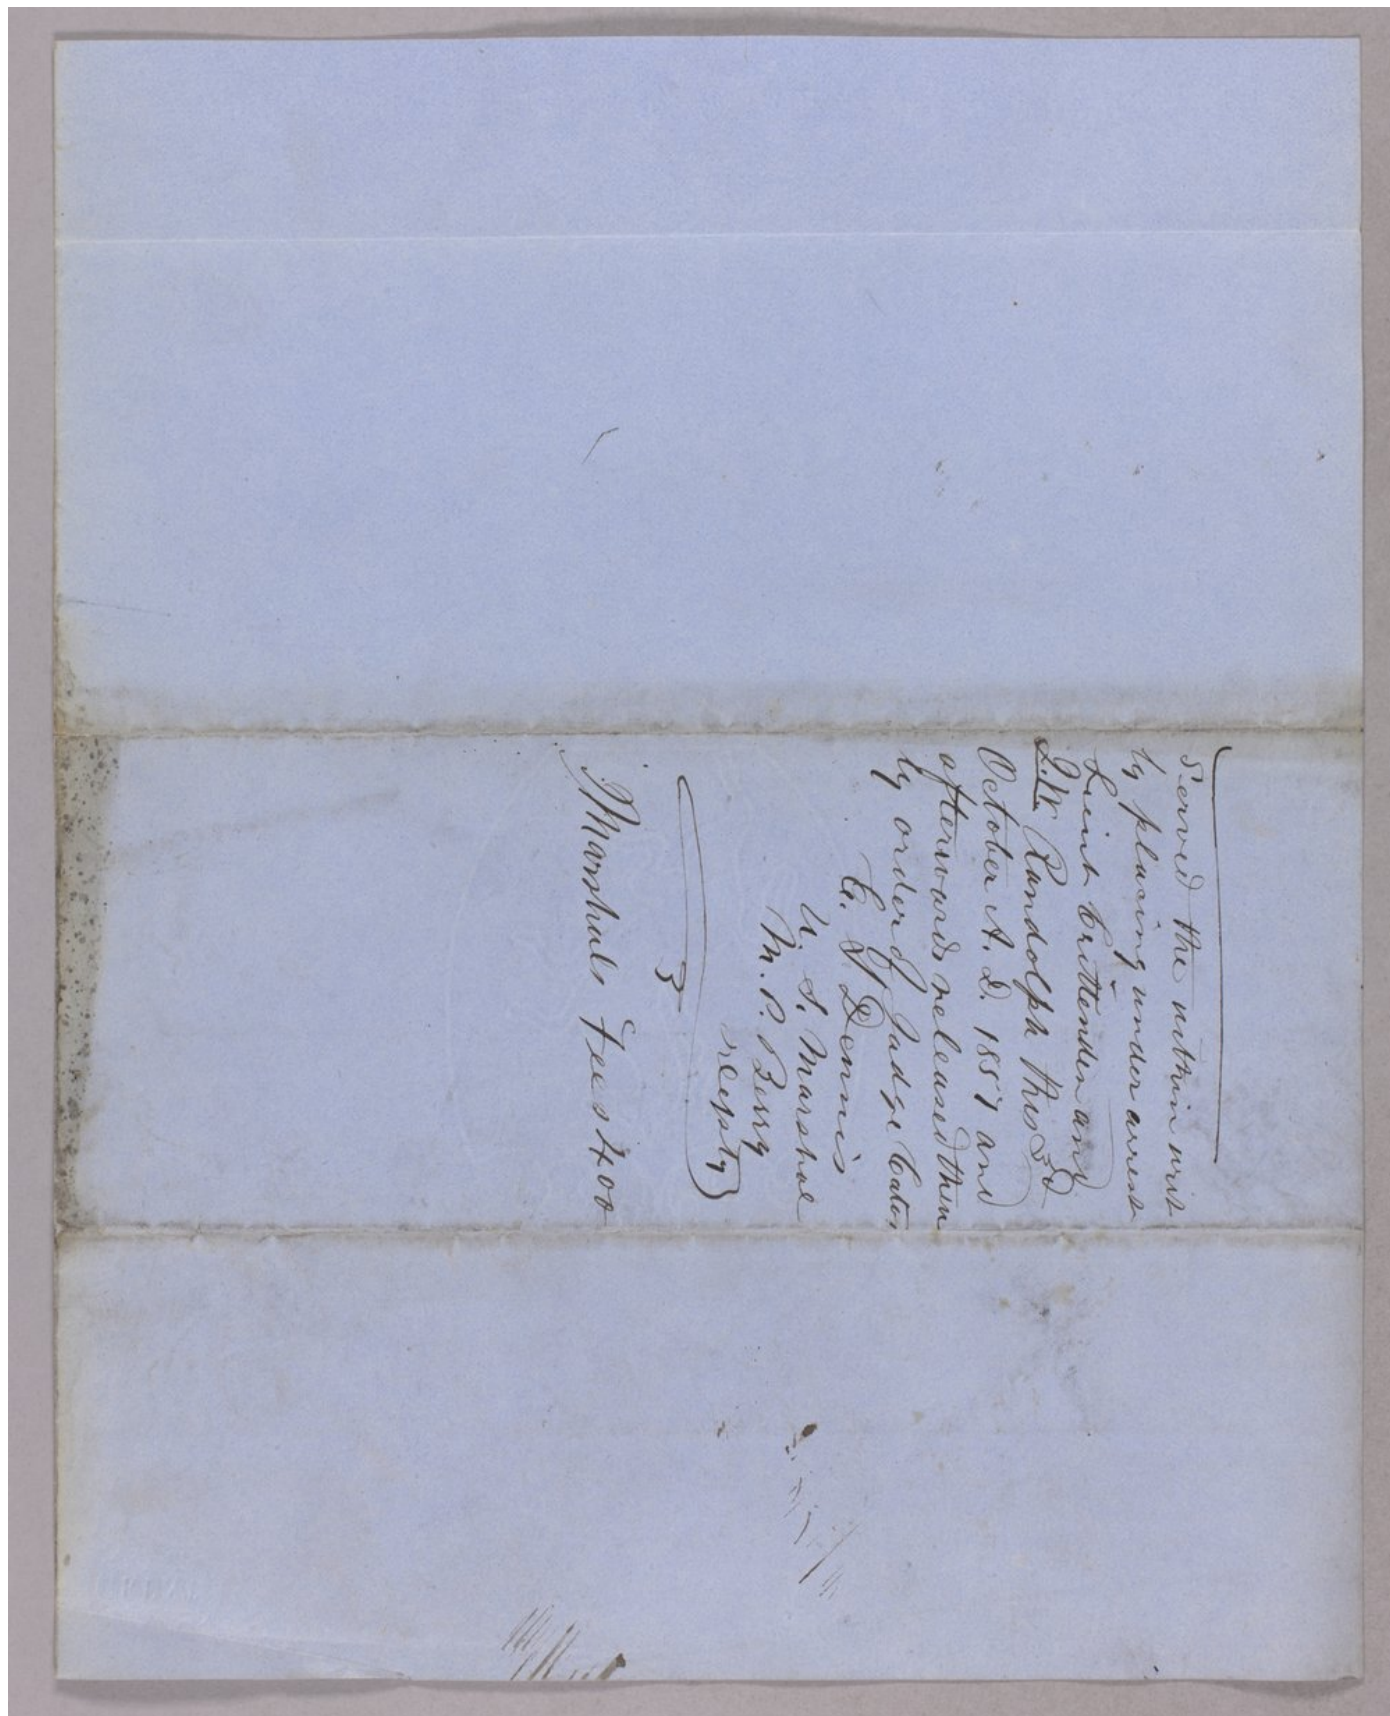 Served the within writ
by placing under arrest
Lieut Crittenden and
J. W. Randolph this 3d
October A. D. 1857 and
afterwards released them
by order of Judge Cato
E. S. Dennis
U. S. Marshal
M. P. Berry
Depty
3
Marshals Fees 4 00